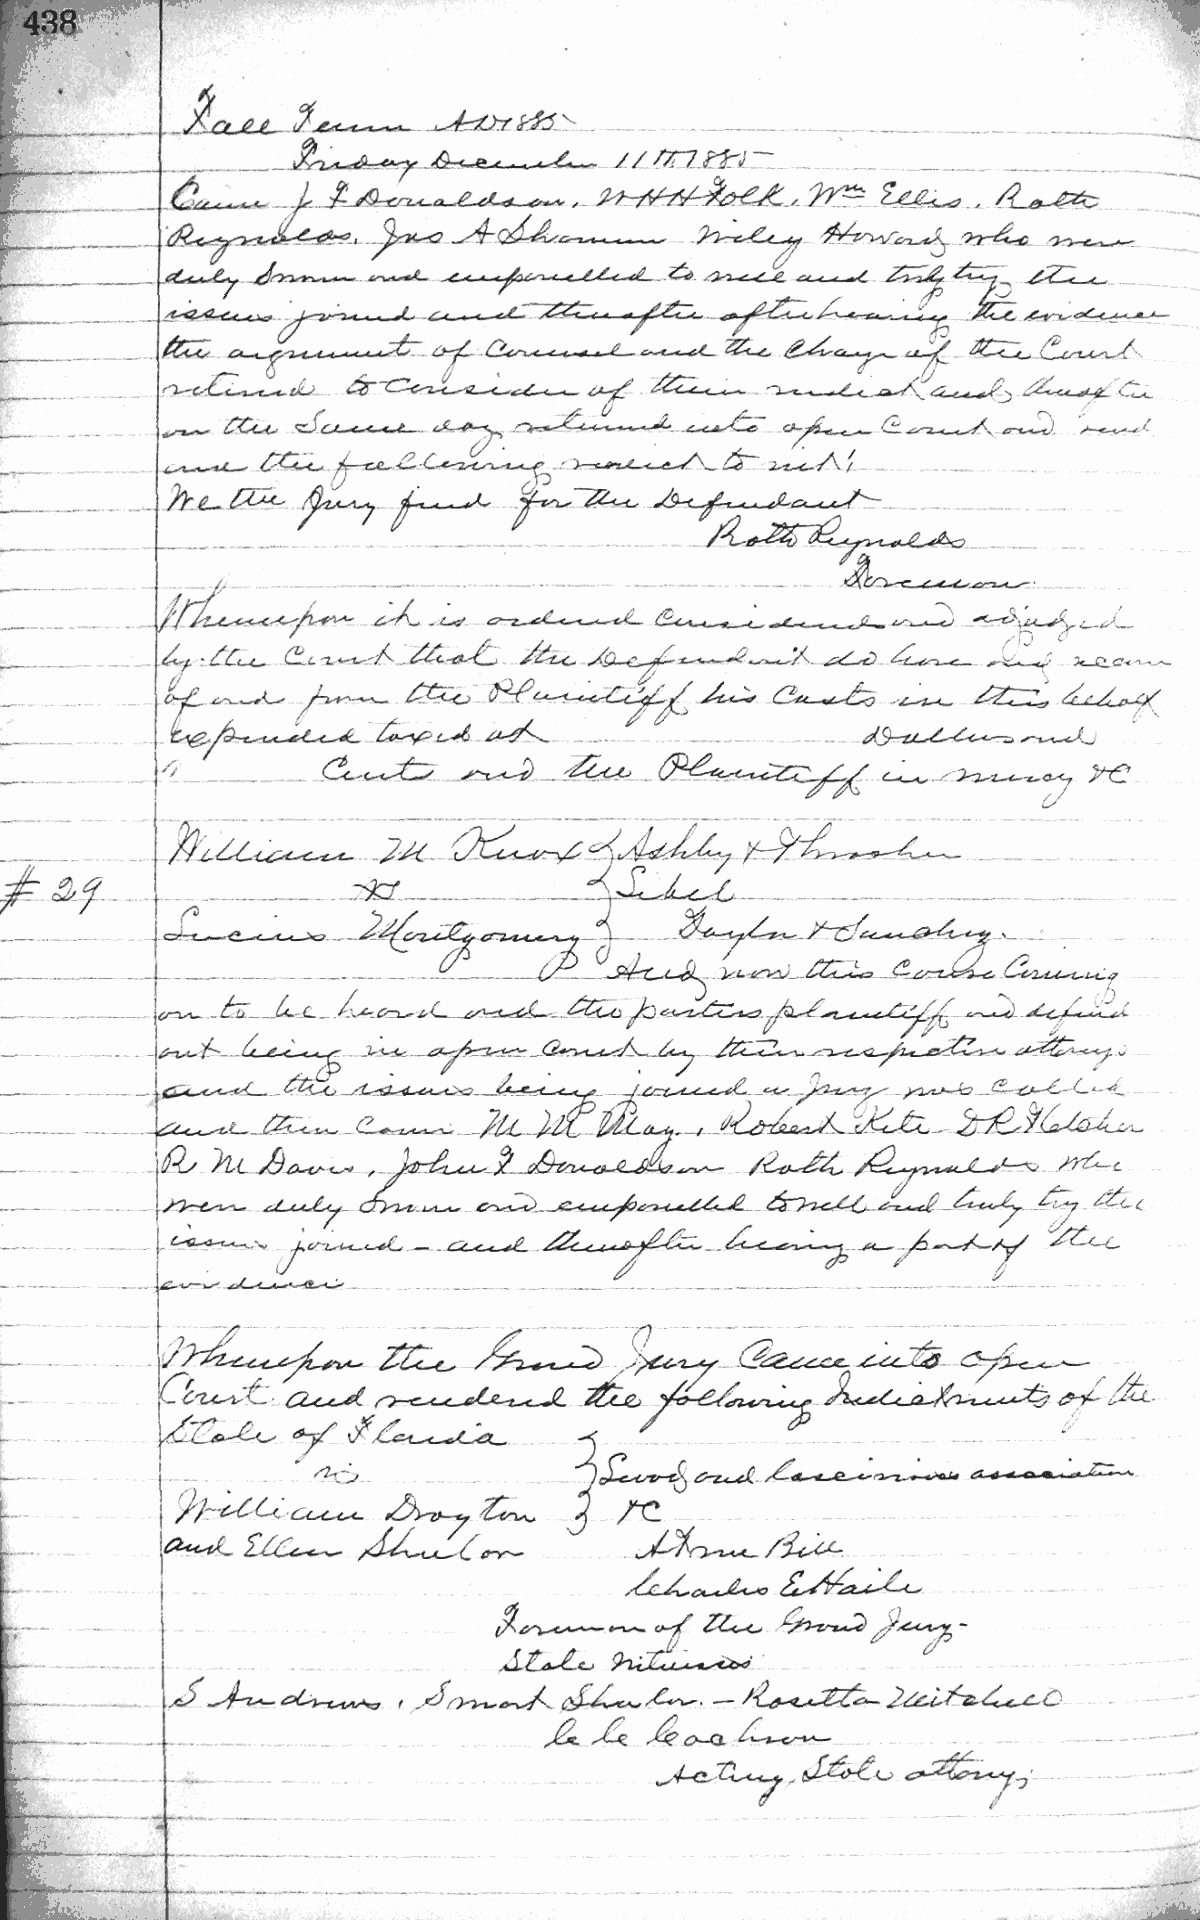 438
Fall Term AD 1885
Friday December 11th 1885
Came J F Donaldson, W H H Folk, Wm Ellis, Rolth
Reynolds, Jas A Shannon Wiley Howard who were
duly sworn and empanelled to well and truly try the
issues joined and thereafter after hearing the evidence
the argument of Counsel and the Charge of the Court
retired to Consider of their verdict and thereafter
on the Same day returned into open Court and rend
ered the following verdict to wit:
We the Jury find for the Defendant
Rolth Reynolds
Foreman
Whereupon it is ordered Considered and adjudged
by the Court that the Defendant do have and recover
of and from the Plaintiff his Costs in this behalf
expended taxed at Dollars and
Cents and the Plaintiff in mercy &C
William M Knox } Ashby & Thrasher
# 29 vs } Libel
Lucius Montgomery } Taylor & Sanchez.
And now this cause Coming
on to be heard and the parties plaintiff and defend
ant being in open Court by their respective attorneys
and the issues being joined a Jury was called
and then came M M May, Robert Kite D R Fletcher
R M Davis, John F Donaldson Rolth Reynolds who
were duly sworn and empanelled to well and truly try the
issues joined - and thereafter hearing a part of the
evidence
Whereupon the Grand Jury Came into open
Court and rendered the following Indictments of the
State of Florida }
vs } Lewd and lascivious association
William Drayton } &C
and Ellen Shulor A True Bill
Charles E Haile
Foreman of the Grand Jury-
State Witnesses
S Andrews, Smart Shuler. - Rosetta Mitchell
C C Cochson
Acting State attorney